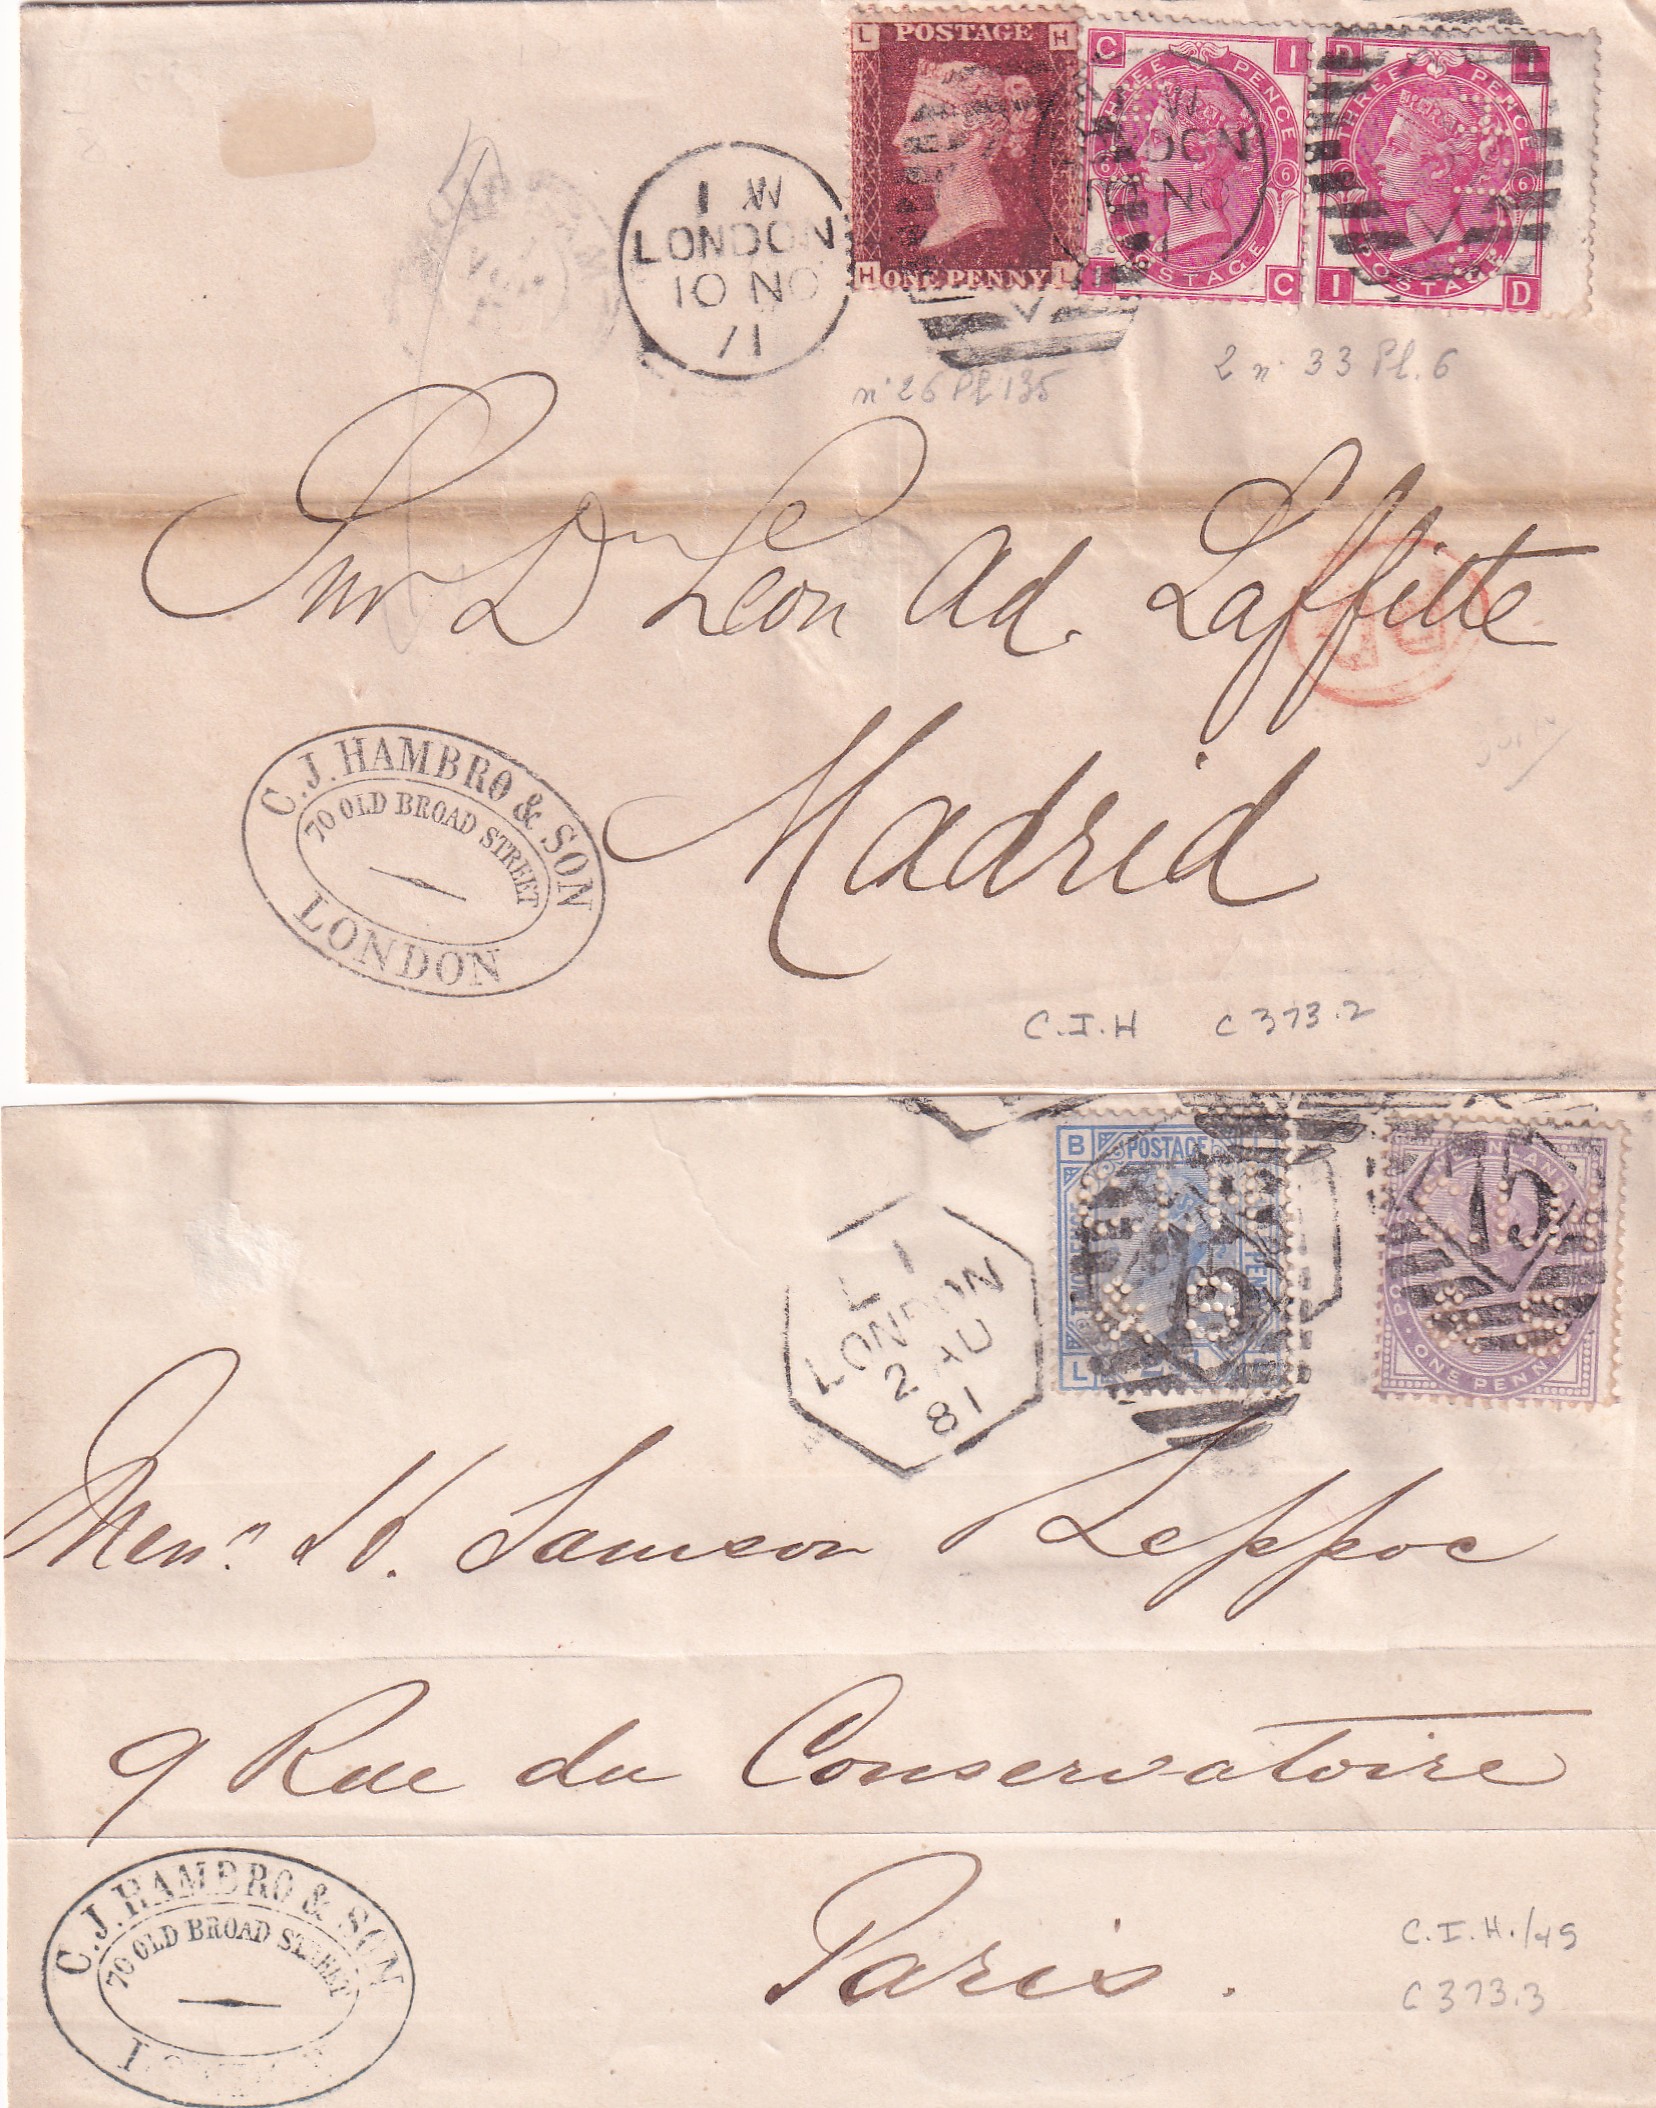 L POSTAGE H
H ONE PENNY L
C I
THREE PENCE
6 6
POSTAGE
I C
D I
THREE PENCE
6
POSTAGE
I D
1 W
LONDON
10 NO
71
LONDON
10 NO
71
n° 26 Pl 135
2 n° 33 Pl. 6
Snr Dn Leon Ad. Laffitte
PD
Madrid
C. J. HAMBRO & SON
70 OLD BROAD STREET
LONDON
C.I.H C373.2
B POSTAGE
L
75
75
ONE PENNY
L 1
LONDON
2 AU
81
Messrs H. Samson Leppoc
9 Rue du Conservatoire
Paris.
C. J. HAMBRO & SON
70 OLD BROAD STREET
LONDON
C.I.H./&S
C373.3